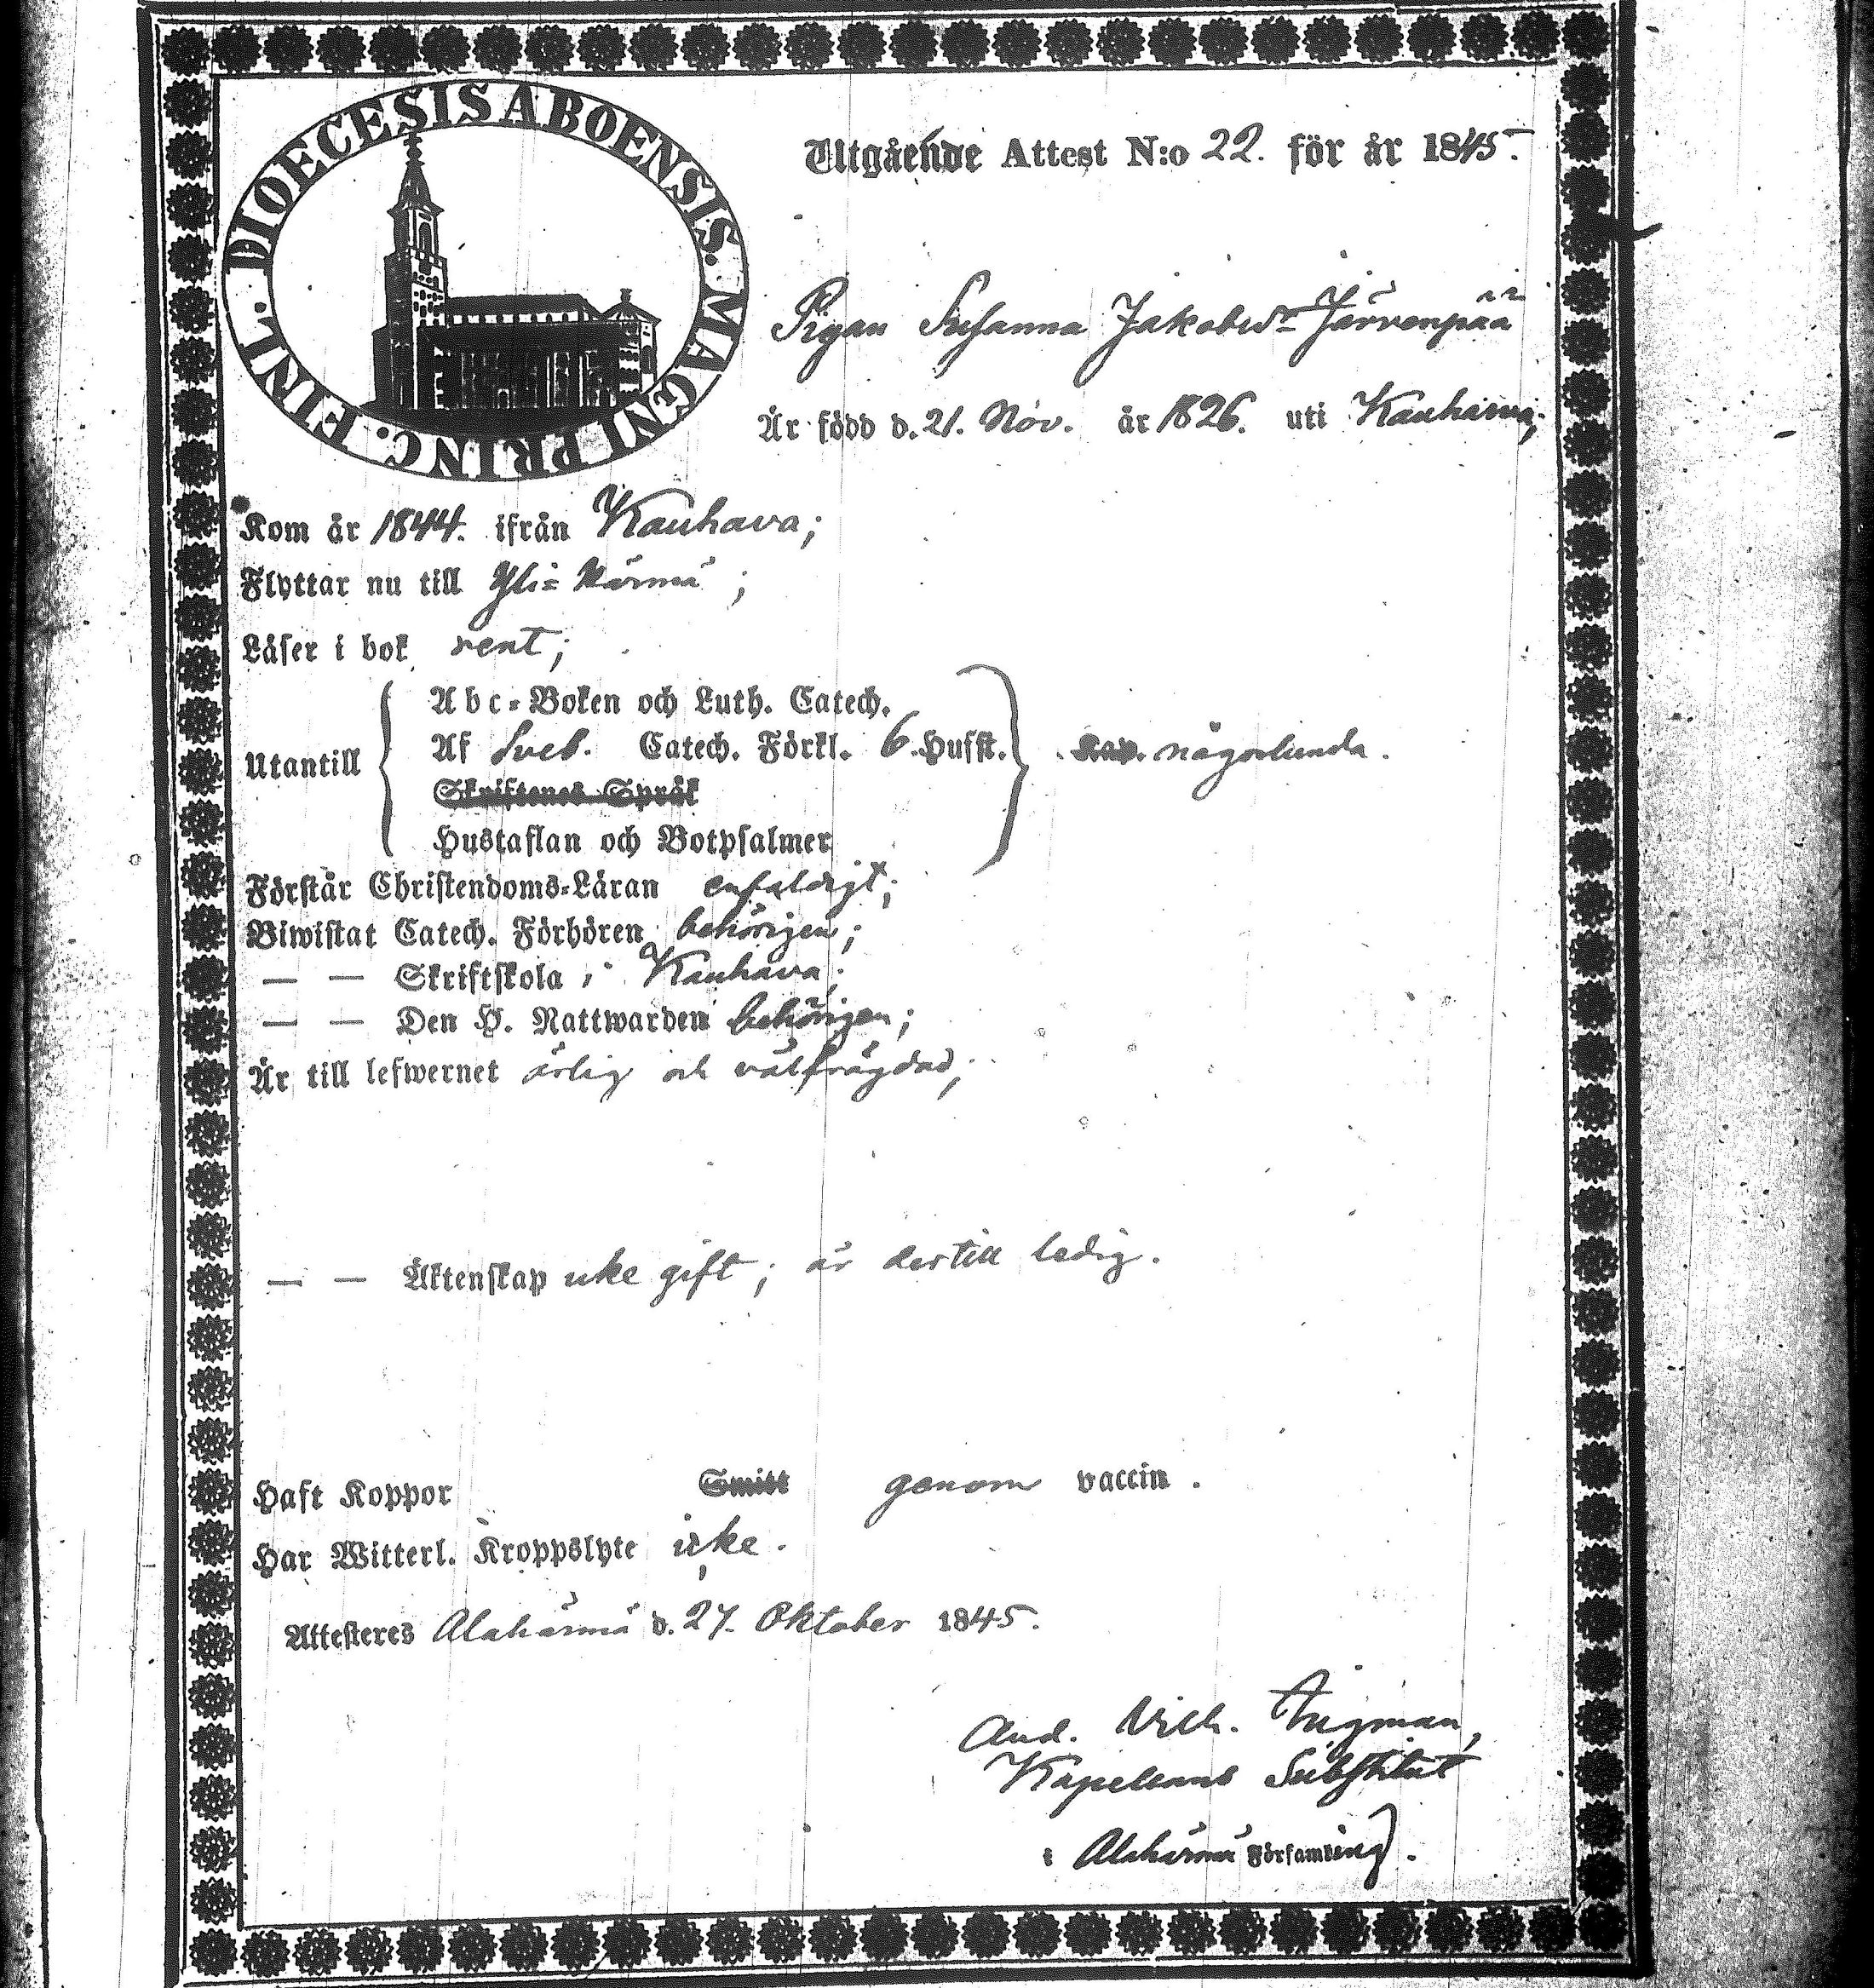 DIOECESIS ABOENSIS. MAGNI PRINC. FINL.
Utgående Attest N:o 22. för år 1845.
Pigan Susanna Jakobsdr Järvenpää
Är född d. 21. Nov. år 1826. uti Kauhava;
Kom år 1844. ifrån Kauhava;
Flyttar nu till Yli=Härmä;
Läser i bok rent;
Utantill
Abc=Boken och Luth. Catech.
Af Sveb. Catech. Förkl. 6. Husst. någorlunda.
Skriftenes Språk
Hustaflan och Botpsalmer
Förstår Christendoms=Läran enfaldigt;
Biwistat Catech. Förhören behörigen;
— — Skriftskola i Kauhava;
— — Den H. Nattwarden behörigen;
Är till lefwernet ärlig och välfrägdad;
— — Äktenskap icke gift; är dertill ledig.
Haft Koppor Smitt genom vaccin.
Har Witterl. Kroppslyte icke.
Attesteres Alahärmä d. 27. Oktober 1845.
And. Vilh. Ingman,
Kapellans Substitut
i Alahärmä Församling.